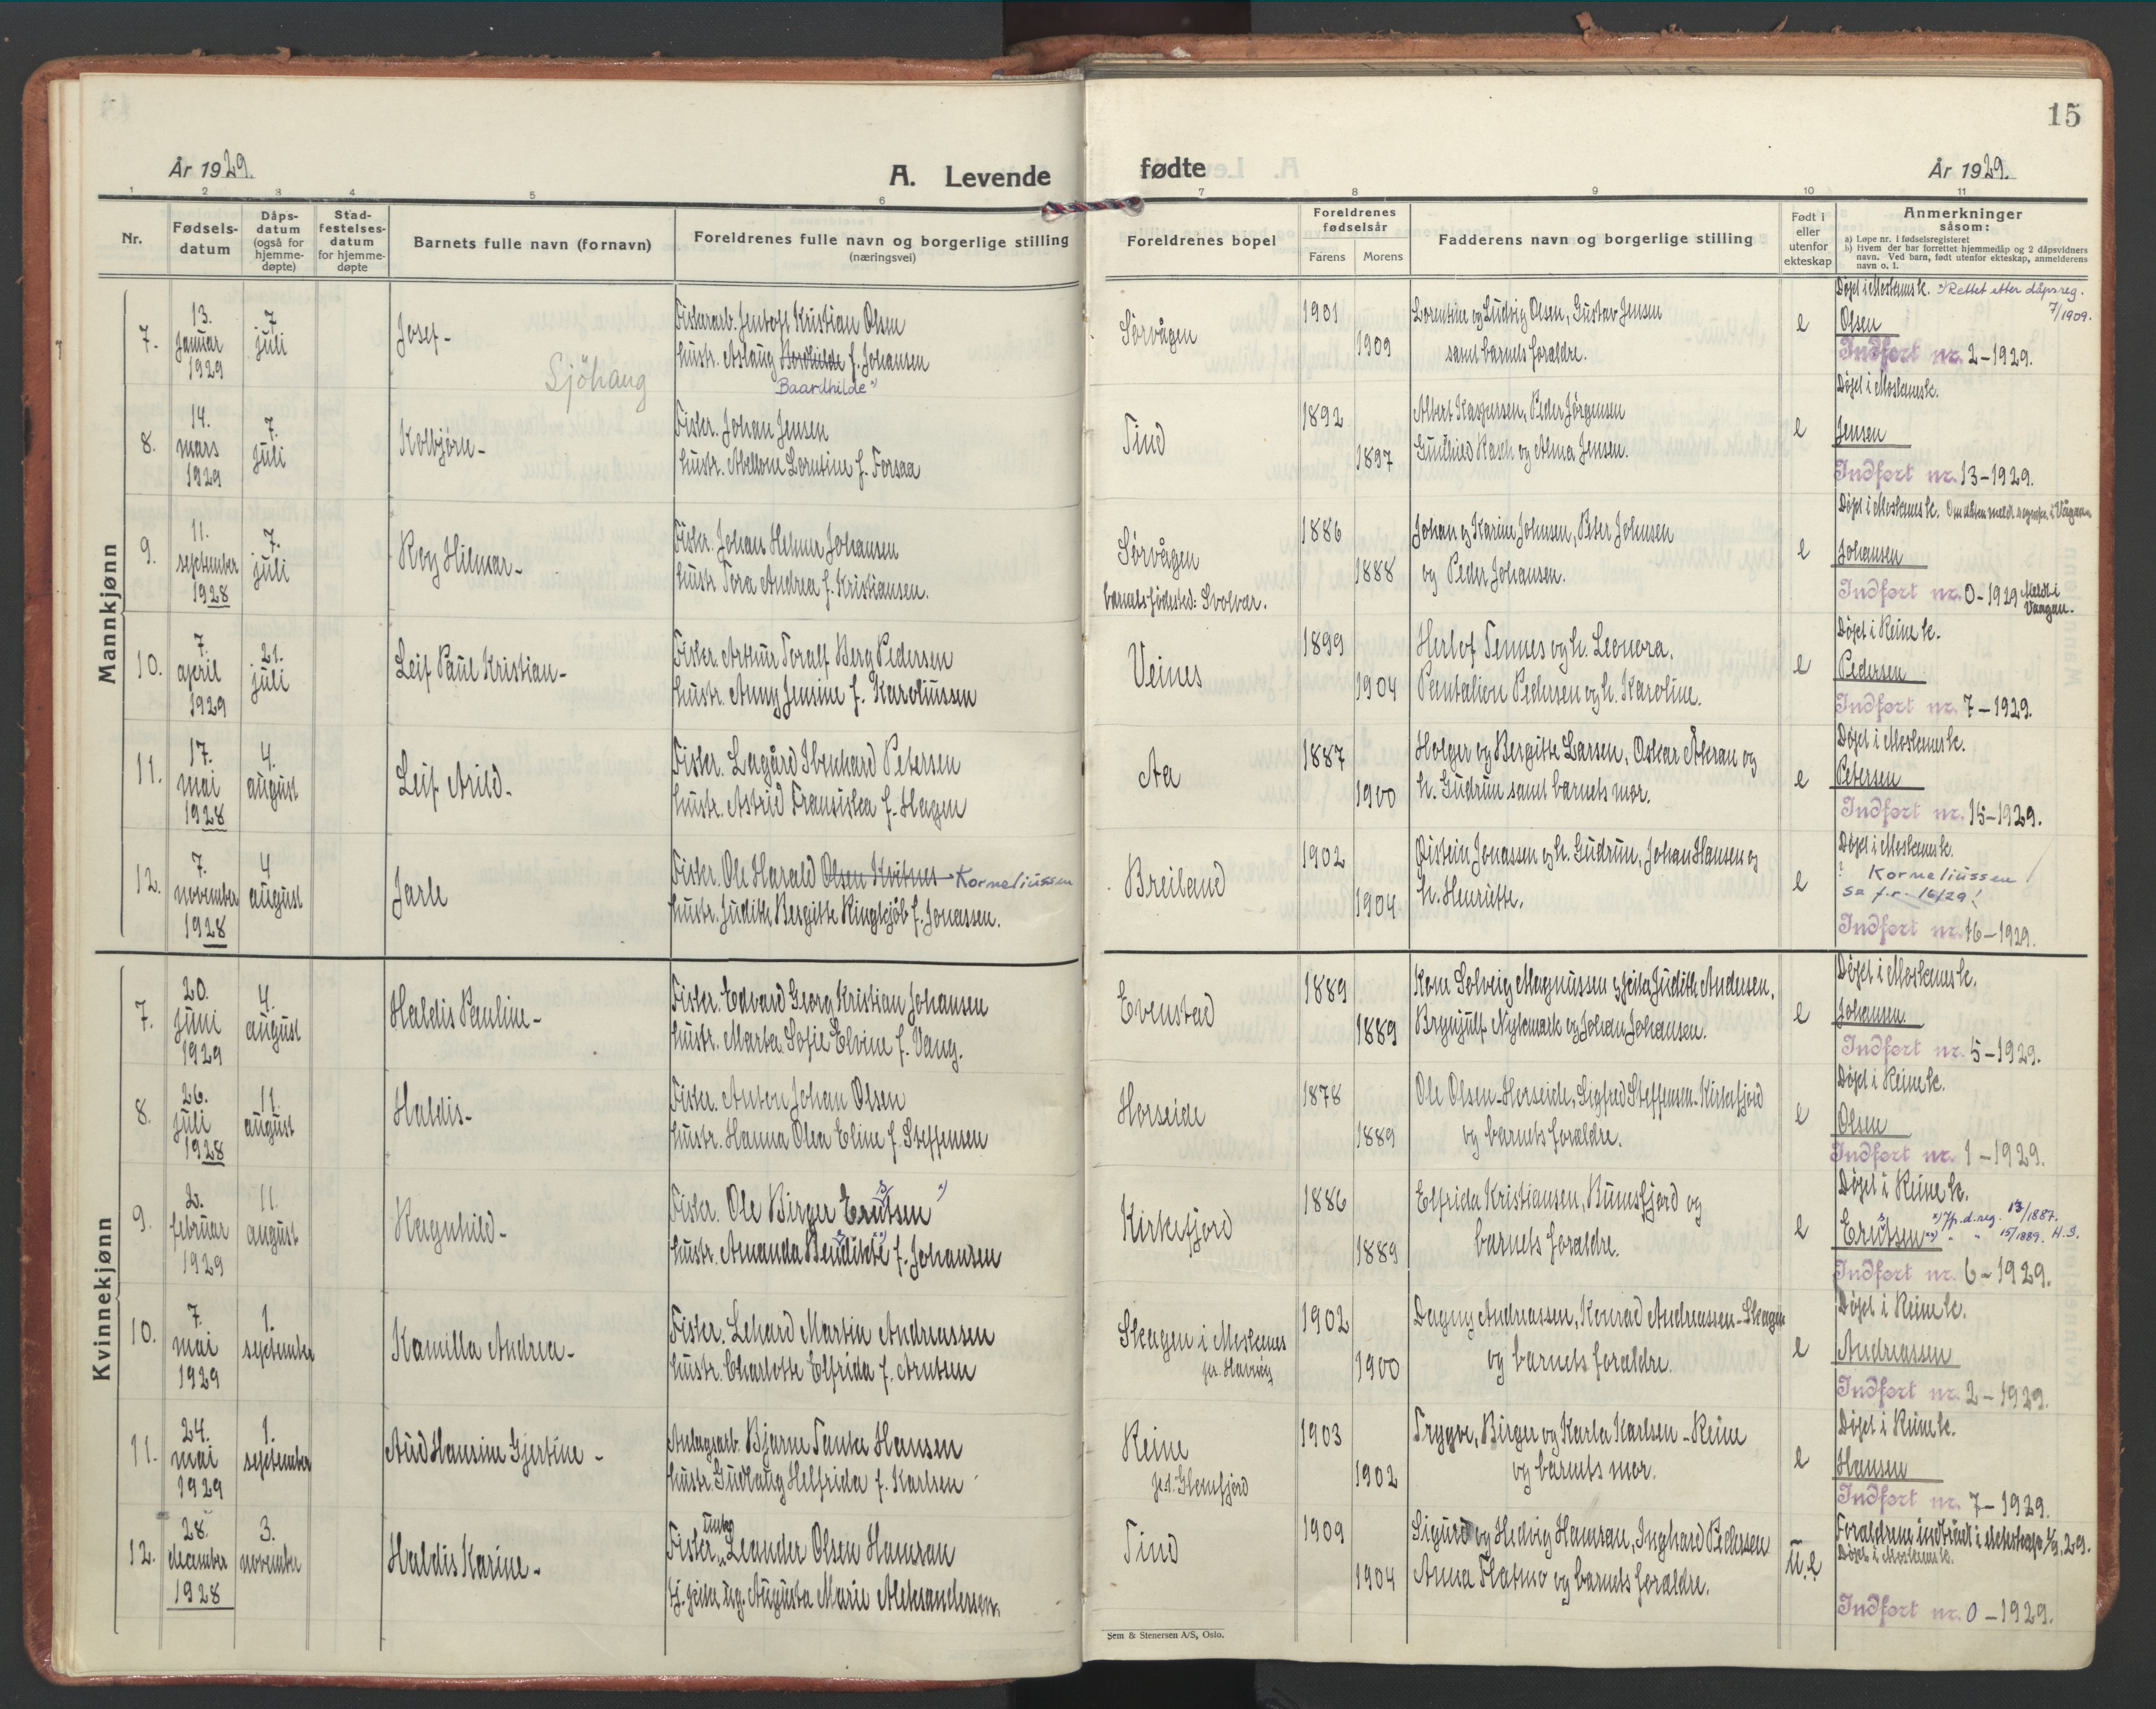 15
År 1929.
A. Levende
fødte
År 1929.
1 2 3 4 5 6
7 8 9 10 11
Nr.
Fødsels-
datum
Dåps-
datum
(også for
hjemme-
døpte)
Stad-
festelses-
datum
for hjemme-
døpte
Barnets fulle navn (fornavn)
Foreldrenes fulle navn og borgerlige stilling
(næringsvei)
Foreldrenes bopel
Foreldrenes
fødselsår
Farens Morens
Fadderens navn og borgerlige stilling
Født i
eller
utenfor
ekteskap
Anmerkninger
såsom:
a) Løpe nr. i fødselsregisteret
b) Hvem der har forrettet hjemmedåp og 2 dåpsvidners
navn. Ved barn, født utenfor ekteskap, anmelderens
navn o. l.
Mannkjønn
7.
13.
januar
1929
7
juli
Josef-
Sjöhaug
Fiskerarb. Jentoft Kristian Olsen
hustr. Aslaug f. Johansen
Baardhilde
Sørvågen
1901
1909
Lorentine og Ludvig Olsen, Gustav Jensen
samt barnets foraldre.
e
Døpt i Moskenes k. Rettet etter dåpsreg.
7/1909.
Olsen
Indført nr. 2-1929.
8.
14.
mars
1929
7.
juli
Kolbjørn-
Fisker. Johan Jensen
hustr. Lorntine f. Forsaa
Tind
1892
1897
Albert Kaspersen, Peder Jørgensen
Gunhild Rasch og Alma Jensen.
e
Døpt i Moskenes k.
Jensen
Indført nr. 13-1929.
9.
11.
september
1928
7.
juli
Roy Hilmar-
Fisker. Johan Helmer Johansen
hustr. Tora Andrea f. Kristiansen.
Sørvågen
barnets fødested: Svolvær.
1886
1888
Johan og Karine Johnsen, Peter Johnsen
og Peder Johansen.
e
Døpt i Moskenes k.
Johansen
Indført nr. 0-1929 Meldt i
Vaagan.
10.
7.
april
1929
21.
juli
Leif Paul Kristian-
Fisker. Artur Toralf Berg Pedersen
hustr. Anny Jensine f. Karoliussen
Veines
1899
1904
Herlof Tennes og h. Leonora.
Pantalion Pedersen og h. Karoline.
e
Døpt i Reine k.
Pedersen
Indført nr. 7-1929.
11.
17.
mai
1928
4.
august
Leif Arild-
Fisker. Lagård Ibenhard Petersen
hustr. Astrid Fransiska f. Hagen
Aa
1887
1900
Holger og Bergitte Larsen, Oskar Åkran og
h. Gudrun samt barnets mor.
e
Døpt i Moskenes k.
Petersen
Indført nr. 15-1929.
12.
7.
november
1928
4
august
Jarle
Fisker. Ole Harald Olsen Kvitnes - Korneliussen
hustr. Judith Bergitte Ringkjøb f. Jonassen.
Breiland
1902
1904
Øistein Jonassen og h. Gudrun, Johan Hansen og
h. Henriette.
e
Døpt i Moskenes k.
! Korneliussen
se f.r. 16/29!
Indført nr. 16-1929.
Kvinnekjønn
7.
20.
juni
1929
4.
august
Haldis Pauline-
Fisker. Edvard Georg Kristian Johansen
hustr. Marta Sofie Elvine f. Vang.
Evenstad
1889
1889
Kone Solveig Magnussen og Judith Andersen,
Brynjulf Nykmark og Johan Johansen.
e
Døpt i Moskenes k.
Johansen
Indført nr. 5-1929.
8.
26.
juli
1928
11.
august
Haldis-
Fisker. Anton Johan Olsen
hustr. Hanna Olea Eline f. Steffensen
Horseide
1878
1889
Ole Olsen-Horseide, Sigfred Steffensen-Kirkefjord
og barnets foraldre.
e
Døpt i Reine k.
Olsen
Indført nr. 1-1929.
9.
2.
februar
1929
11.
august
Ragnhild-
Fisker. Ole Birger
hustr. Amanda Bendikte f. Johansen
Kirkefjord
1886
1889
Elfrida Kristiansen, Sundsfjord og
barnets foraldre.
e
Døpt i Reine k.
Jfr. d.reg. 13/1887.
" " 15/1889. H.S.
Indført nr. 6-1929.
10.
7.
mai
1929
1.
september
Kamilla Andrea-
Fisker. Lehard Martin Andreassen
hustr. Charlotte Elfrida f. Arntsen
Skagen i Moskenes
1902
1900
Dagny Andreassen, Konrad Andreassen-Skagen
og barnets foraldre.
e
Døpt i Reine k.
Andreassen
Indført nr. 2-1929.
11.
24.
mai
1929
1.
september
Aud Hansine Gjertine -
Anlagsarb. Bjarne Tanke Hansen
hustr. Gudlaug Helfrida f. Karlsen
Reine
p.t. Glomfjord
1903
1902
Trygve, Birger og Karla Karlsen-Reine
og barnets mor.
e
Døpt i Reine k.
Hansen
Indført nr. 7-1929.
12.
28.
december
1928
3.
november
Haldis Karine-
Fisker ungk. Leander Olsen Hamran
ug. Augusta Marie Aleksandersen.
Tind
1909
1904
Sigurd og Hedvig Hamran, Inghard Pedersen
Anna Flatmo og barnets foraldre.
u.e
Foraldrene indtrådt i ekteskap
Døpt i Moskenes k.
Indført nr. 0-1929.
Sem & Stenersen A/S, Oslo.